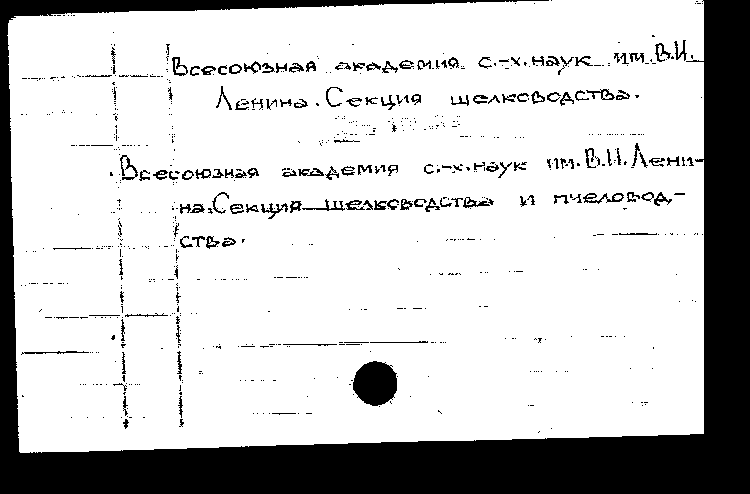 Всесоюзная академия с.-х. наук им. В.И.
Ленина. Секция шелководства.
Всесоюзная академия с.-х. наук им. В.И. Лени-
на. Секция шелководства и пчеловод-
ства.